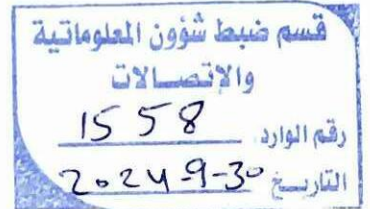 قسم ضبط شؤون المعلوماتية
والإتصالات
رقم الوارد 1558
التاريخ 2024-9-30